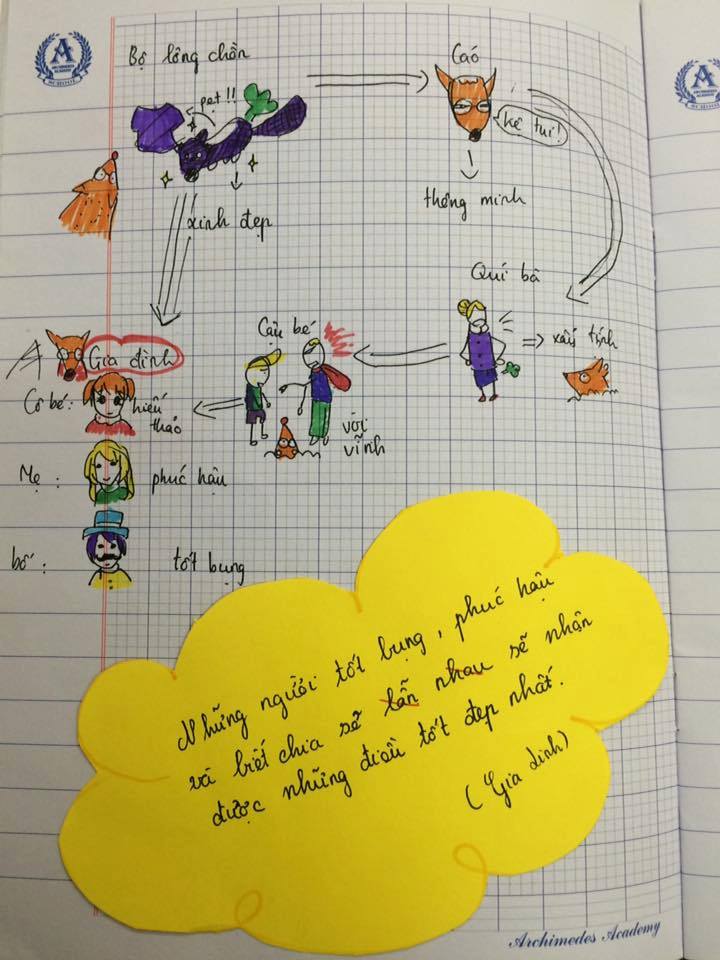 A
ARCHIMEDES ACADEMY
SCHOOL
Bộ lông chồn
Caó
pet!!
kệ tui!
thông minh
xinh đẹp
Quí bà
=> xấu tính
Cậu bé
vòi vĩnh
A
Gia đình
Cô bé:
hiếu
thảo
Mẹ :
phúc hậu
bố :
tốt bụng
Những người tốt bụng, phúc hậu
và biết chia sẽ lẫn nhau sẽ nhận
được những điều tốt đẹp nhất.
(Gia đình)
Archimedes Academy